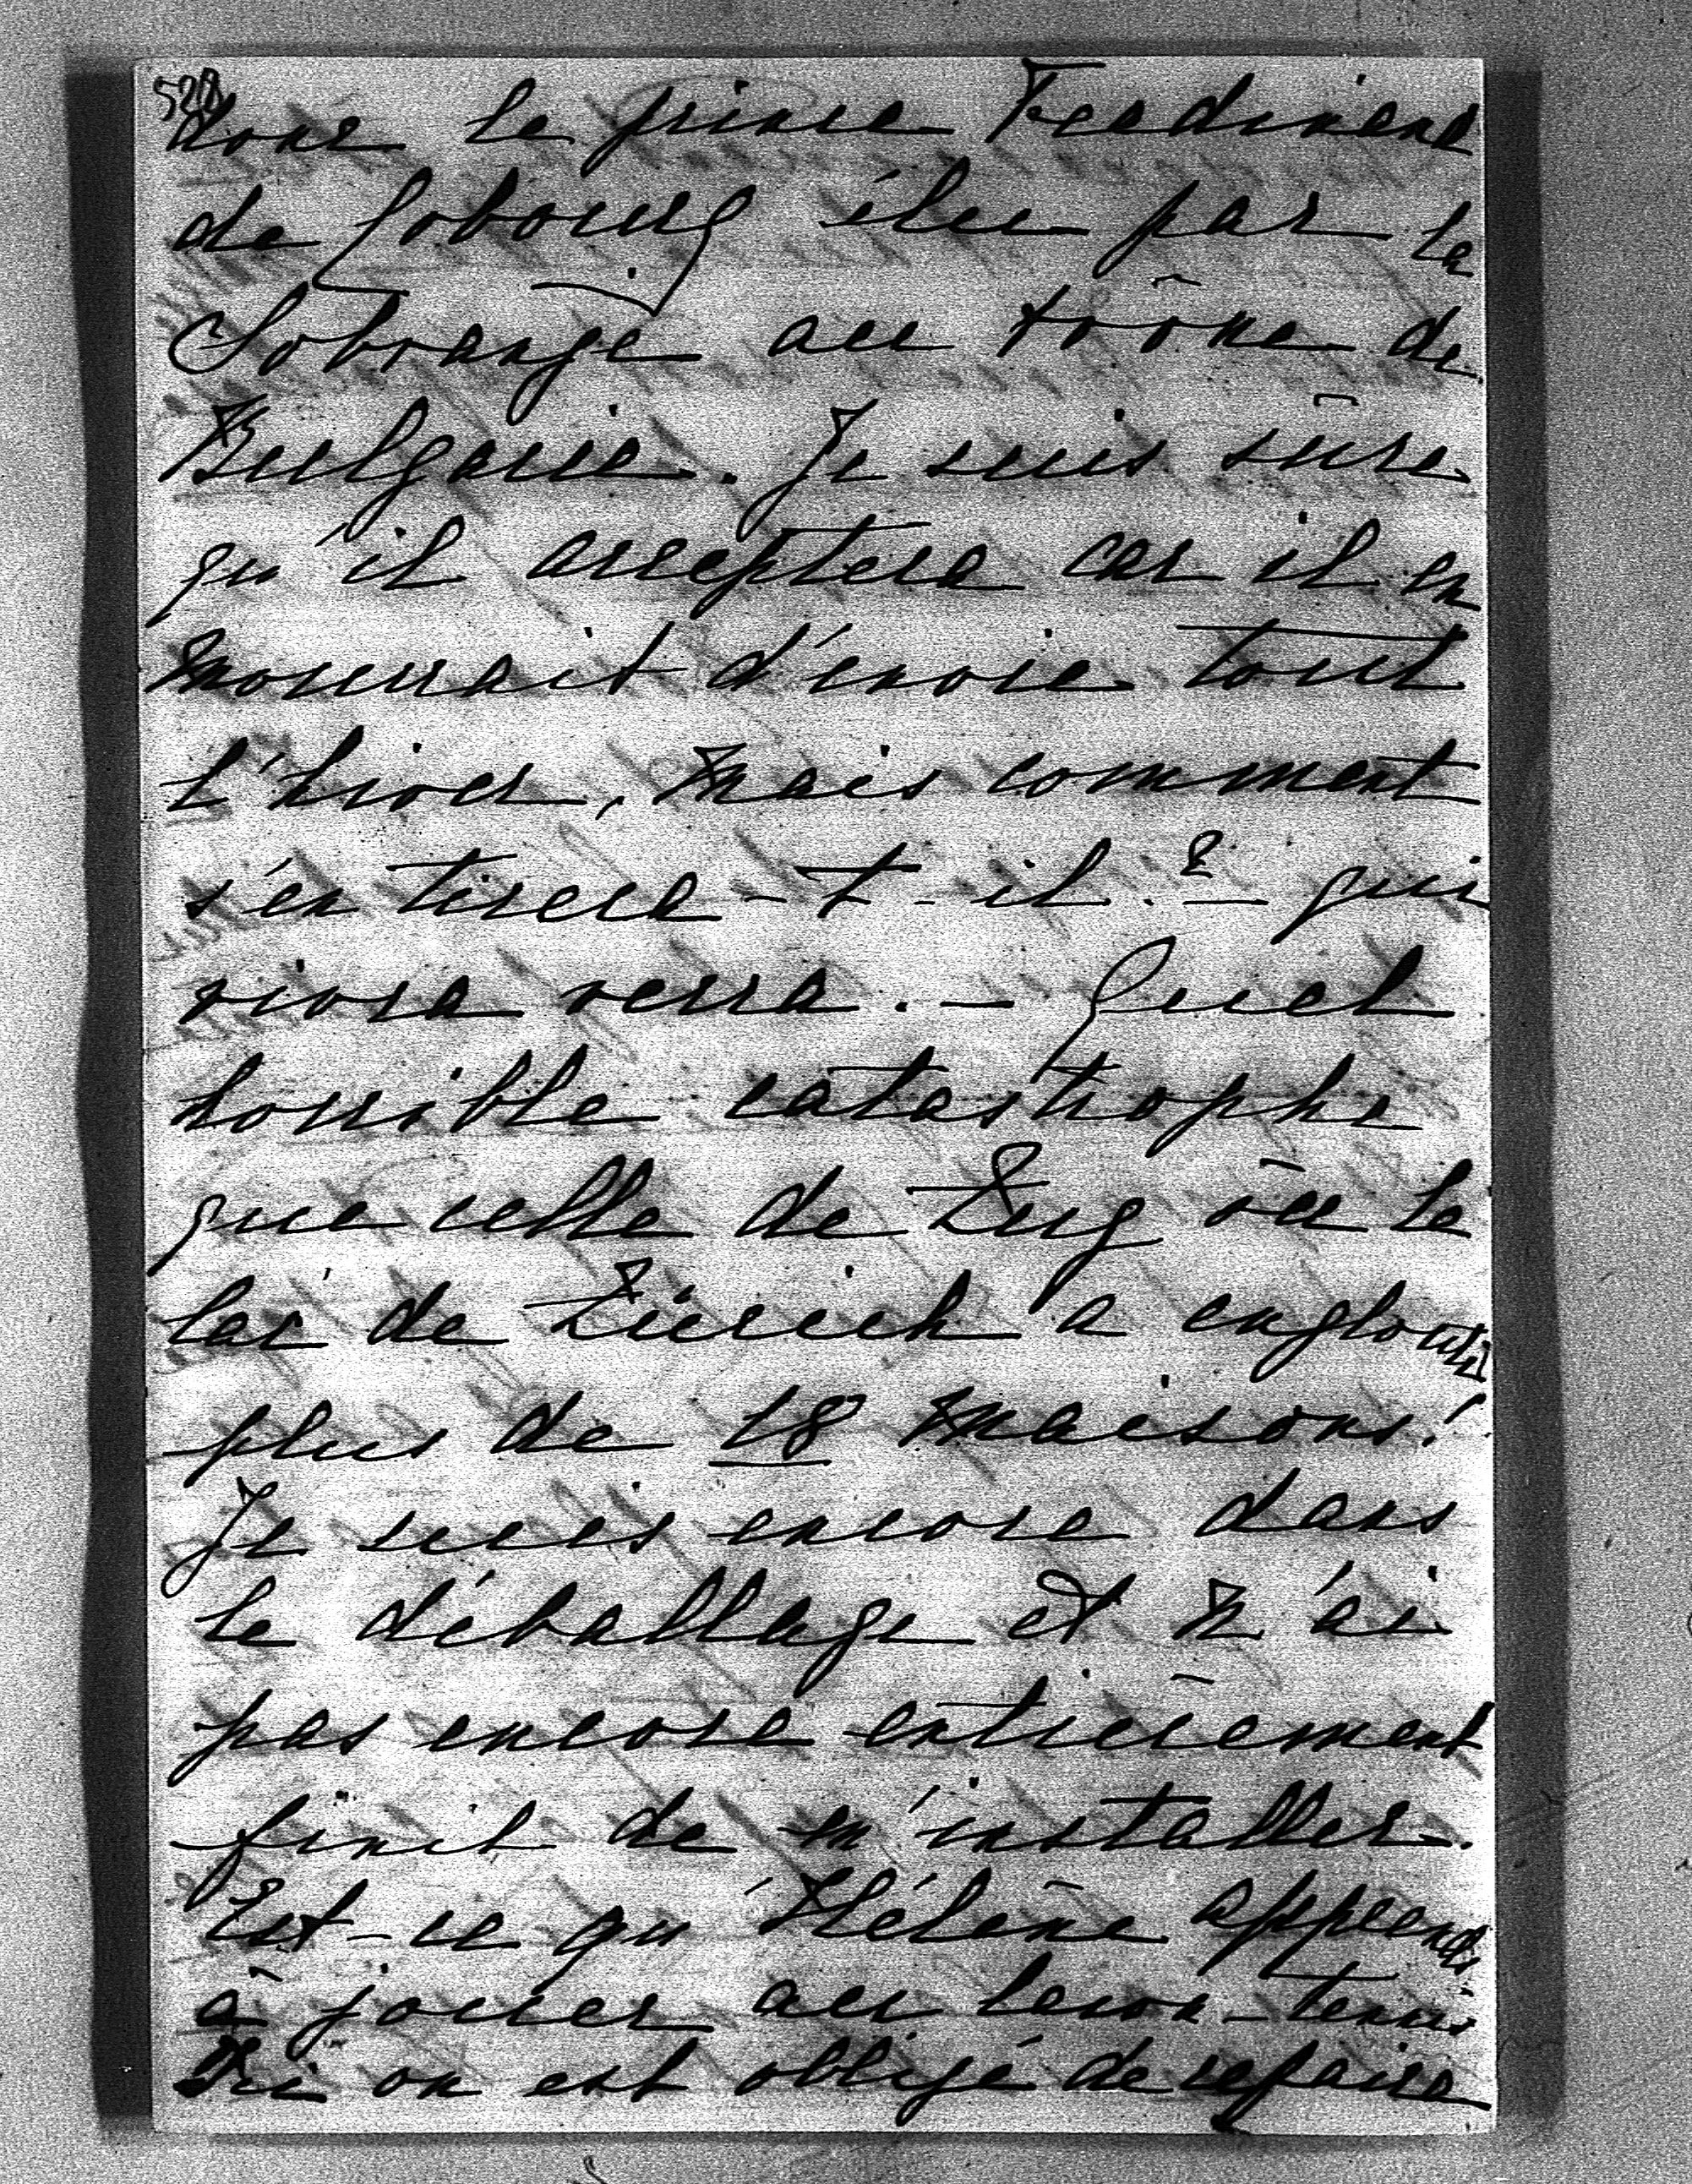 528
donc le prince Ferdinand
de Cobourg élu par la
Sobranje au trône de
Bulgarie. Je suis sûre
qu'il acceptera car il en
mourrait d'envie tout
l'hiver, mais comment
s'en tirera-t-il? – qui
vivra verra. – Quel
horrible catastrophe
que celle de Zug où le
lac de Zürich a englouti
plus de 18 maisons!
Je suis encore dans
le déballage et n'ai
pas encore entièrement
finit de m'installer.
Est-ce qu'Hélène apprend
à jouer au lawn-tennis
Ici on est obligé de refaire